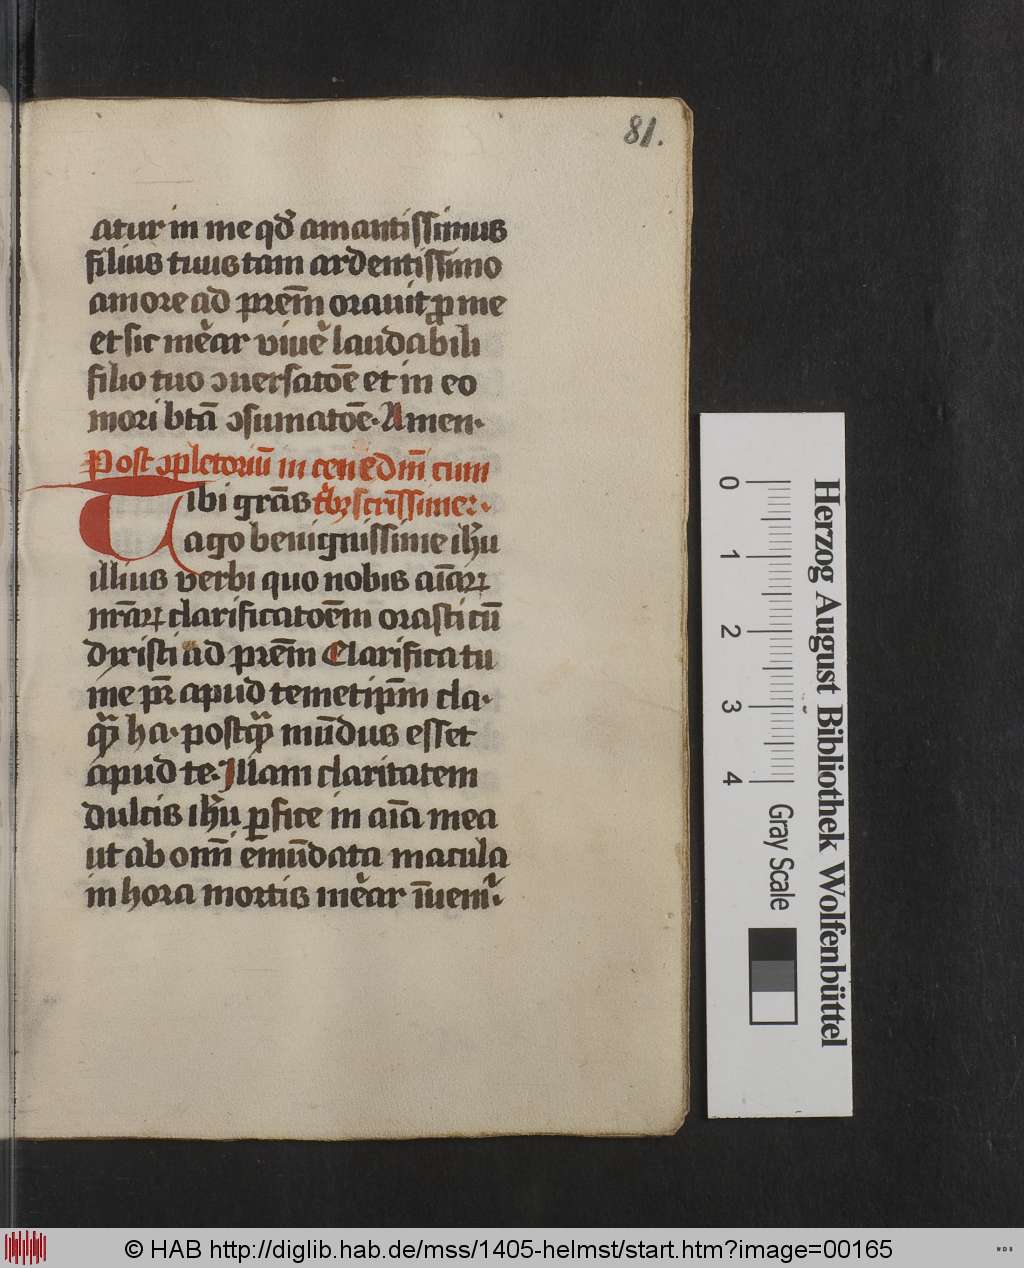 81.
atur in me qđ amantissimus
filius tuus tam ardentissimo
amore ad prēm orauit ꝓ me
et sic mer̄ar viuer̄ laudabili
filio tuo ↄuersatōe et in eo
mori btā ↄsumatōe. Amen.
Post ↄpletoriū in cen
Tibi grās
ago benignissime ihū
illius verbi quo nobis aīaꝝ
nr̄aꝝ clarificatōem orasti cū
dixisti ad prēm Clarifica tu
me pr̄ apud temetipm̄ cla.
ha. postꝙ̄ mūdus esset
apud te. Illam claritatem
dulcis ihū ꝑfice in aīa mea
ut ab om̄i emūdata macula
in hora mortis mer̄ar īuenir̄.
Herzog August Bibliothek Wolfenbüttel
0 1 2 3 4
Gray Scale
© HAB http://diglib.hab.de/mss/1405-helmst/start.htm?image=00165